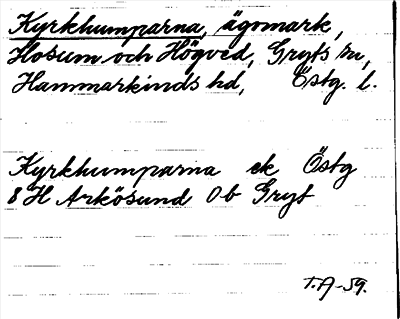 Kyrkhumparna, ägomark,
Hosum och Högved, Gryts sn,
Hammarkinds hd, Östg. l.
Kyrkhumparna ek Östg
8 H Arkösund Ob Gryt
T.A-59.